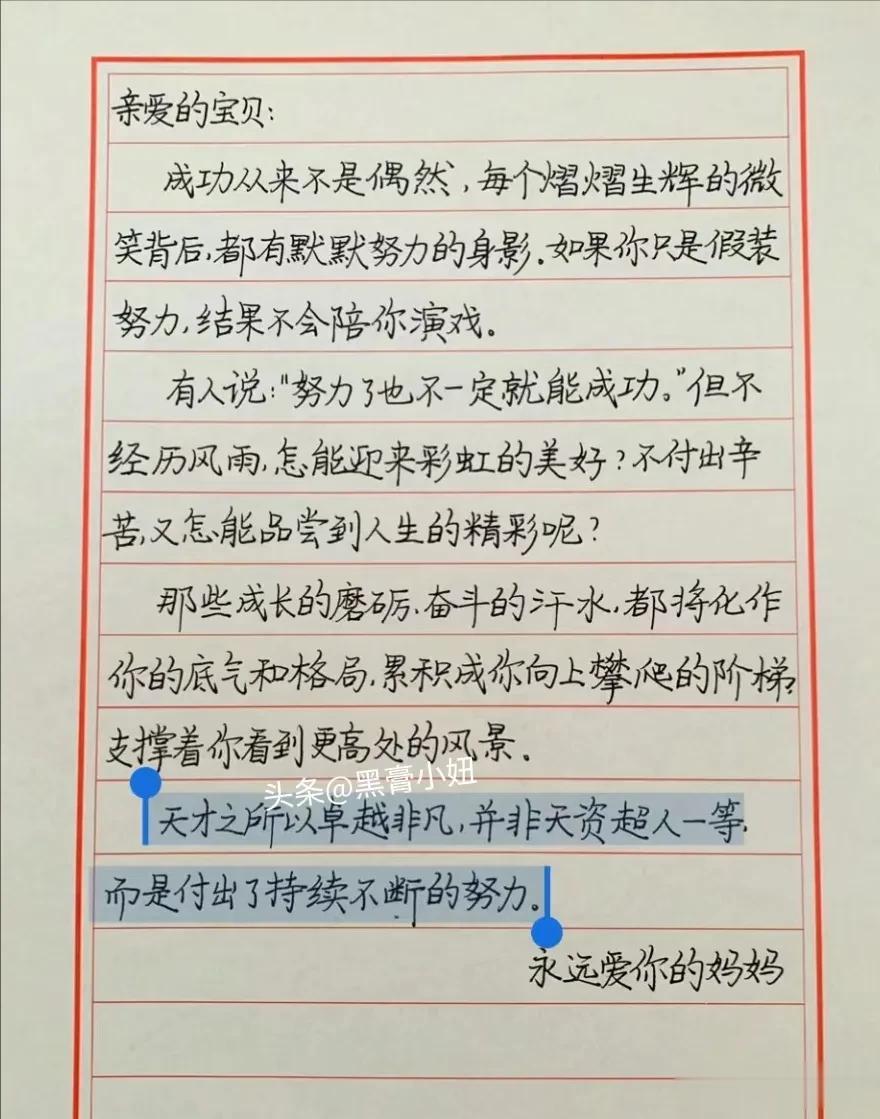 亲爱的宝贝:
成功从来不是偶然,每个熠熠生辉的微
笑背后,都有默默努力的身影.如果你只是假装
努力,结果不会陪你演戏。
有人说:"努力了也不一定就能成功。"但不
经历风雨,怎能迎来彩虹的美好?不付出辛
苦,又怎能品尝到人生的精彩呢?
那些成长的磨砺,奋斗的汗水,都将化作
你的底气和格局,累积成你向上攀爬的阶梯,
支撑着你看到更高处的风景。
头条@黑膏小妞
天才之所以卓越非凡,并非天资超人一等,
而是付出了持续不断的努力。
永远爱你的妈妈